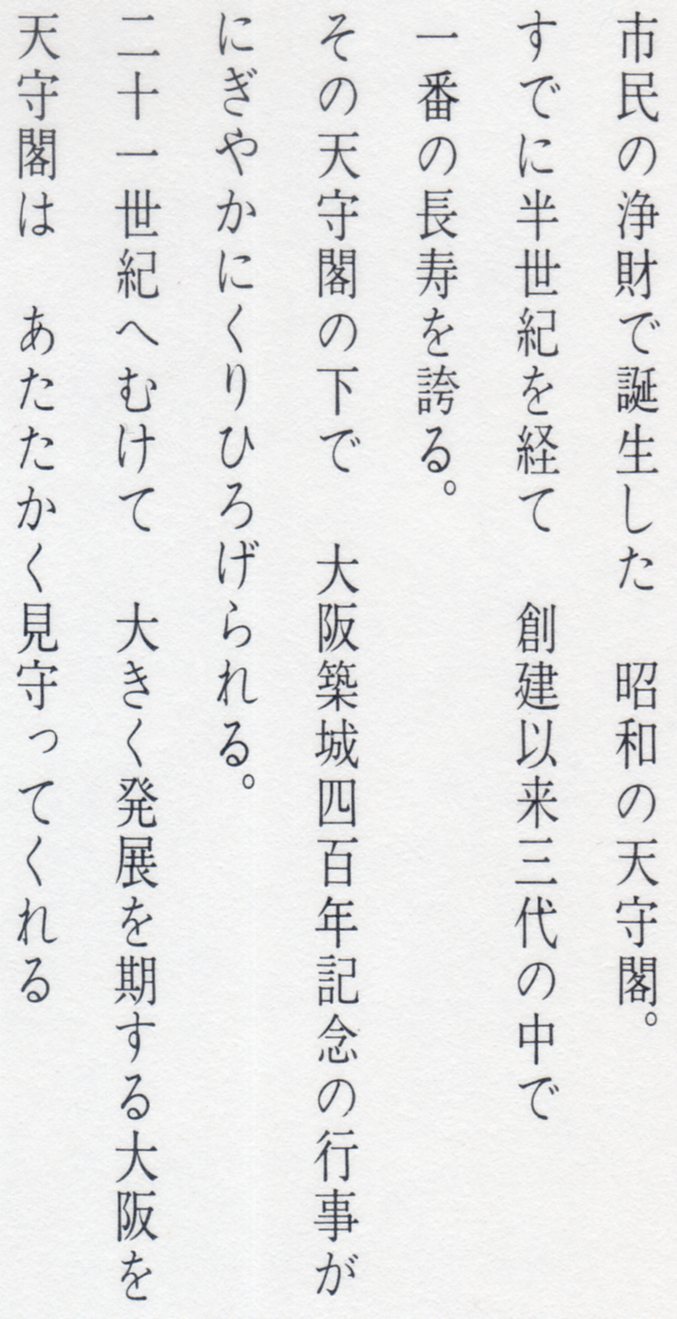 市民の浄財で誕生した　昭和の天守閣。
すでに半世紀を経て　創建以来三代の中で
一番の長寿を誇る。
その天守閣の下で　大阪築城四百年記念の行事が
にぎやかにくりひろげられる。
二十一世紀へむけて　大きく発展を期する大阪を
天守閣は　あたたかく見守ってくれる